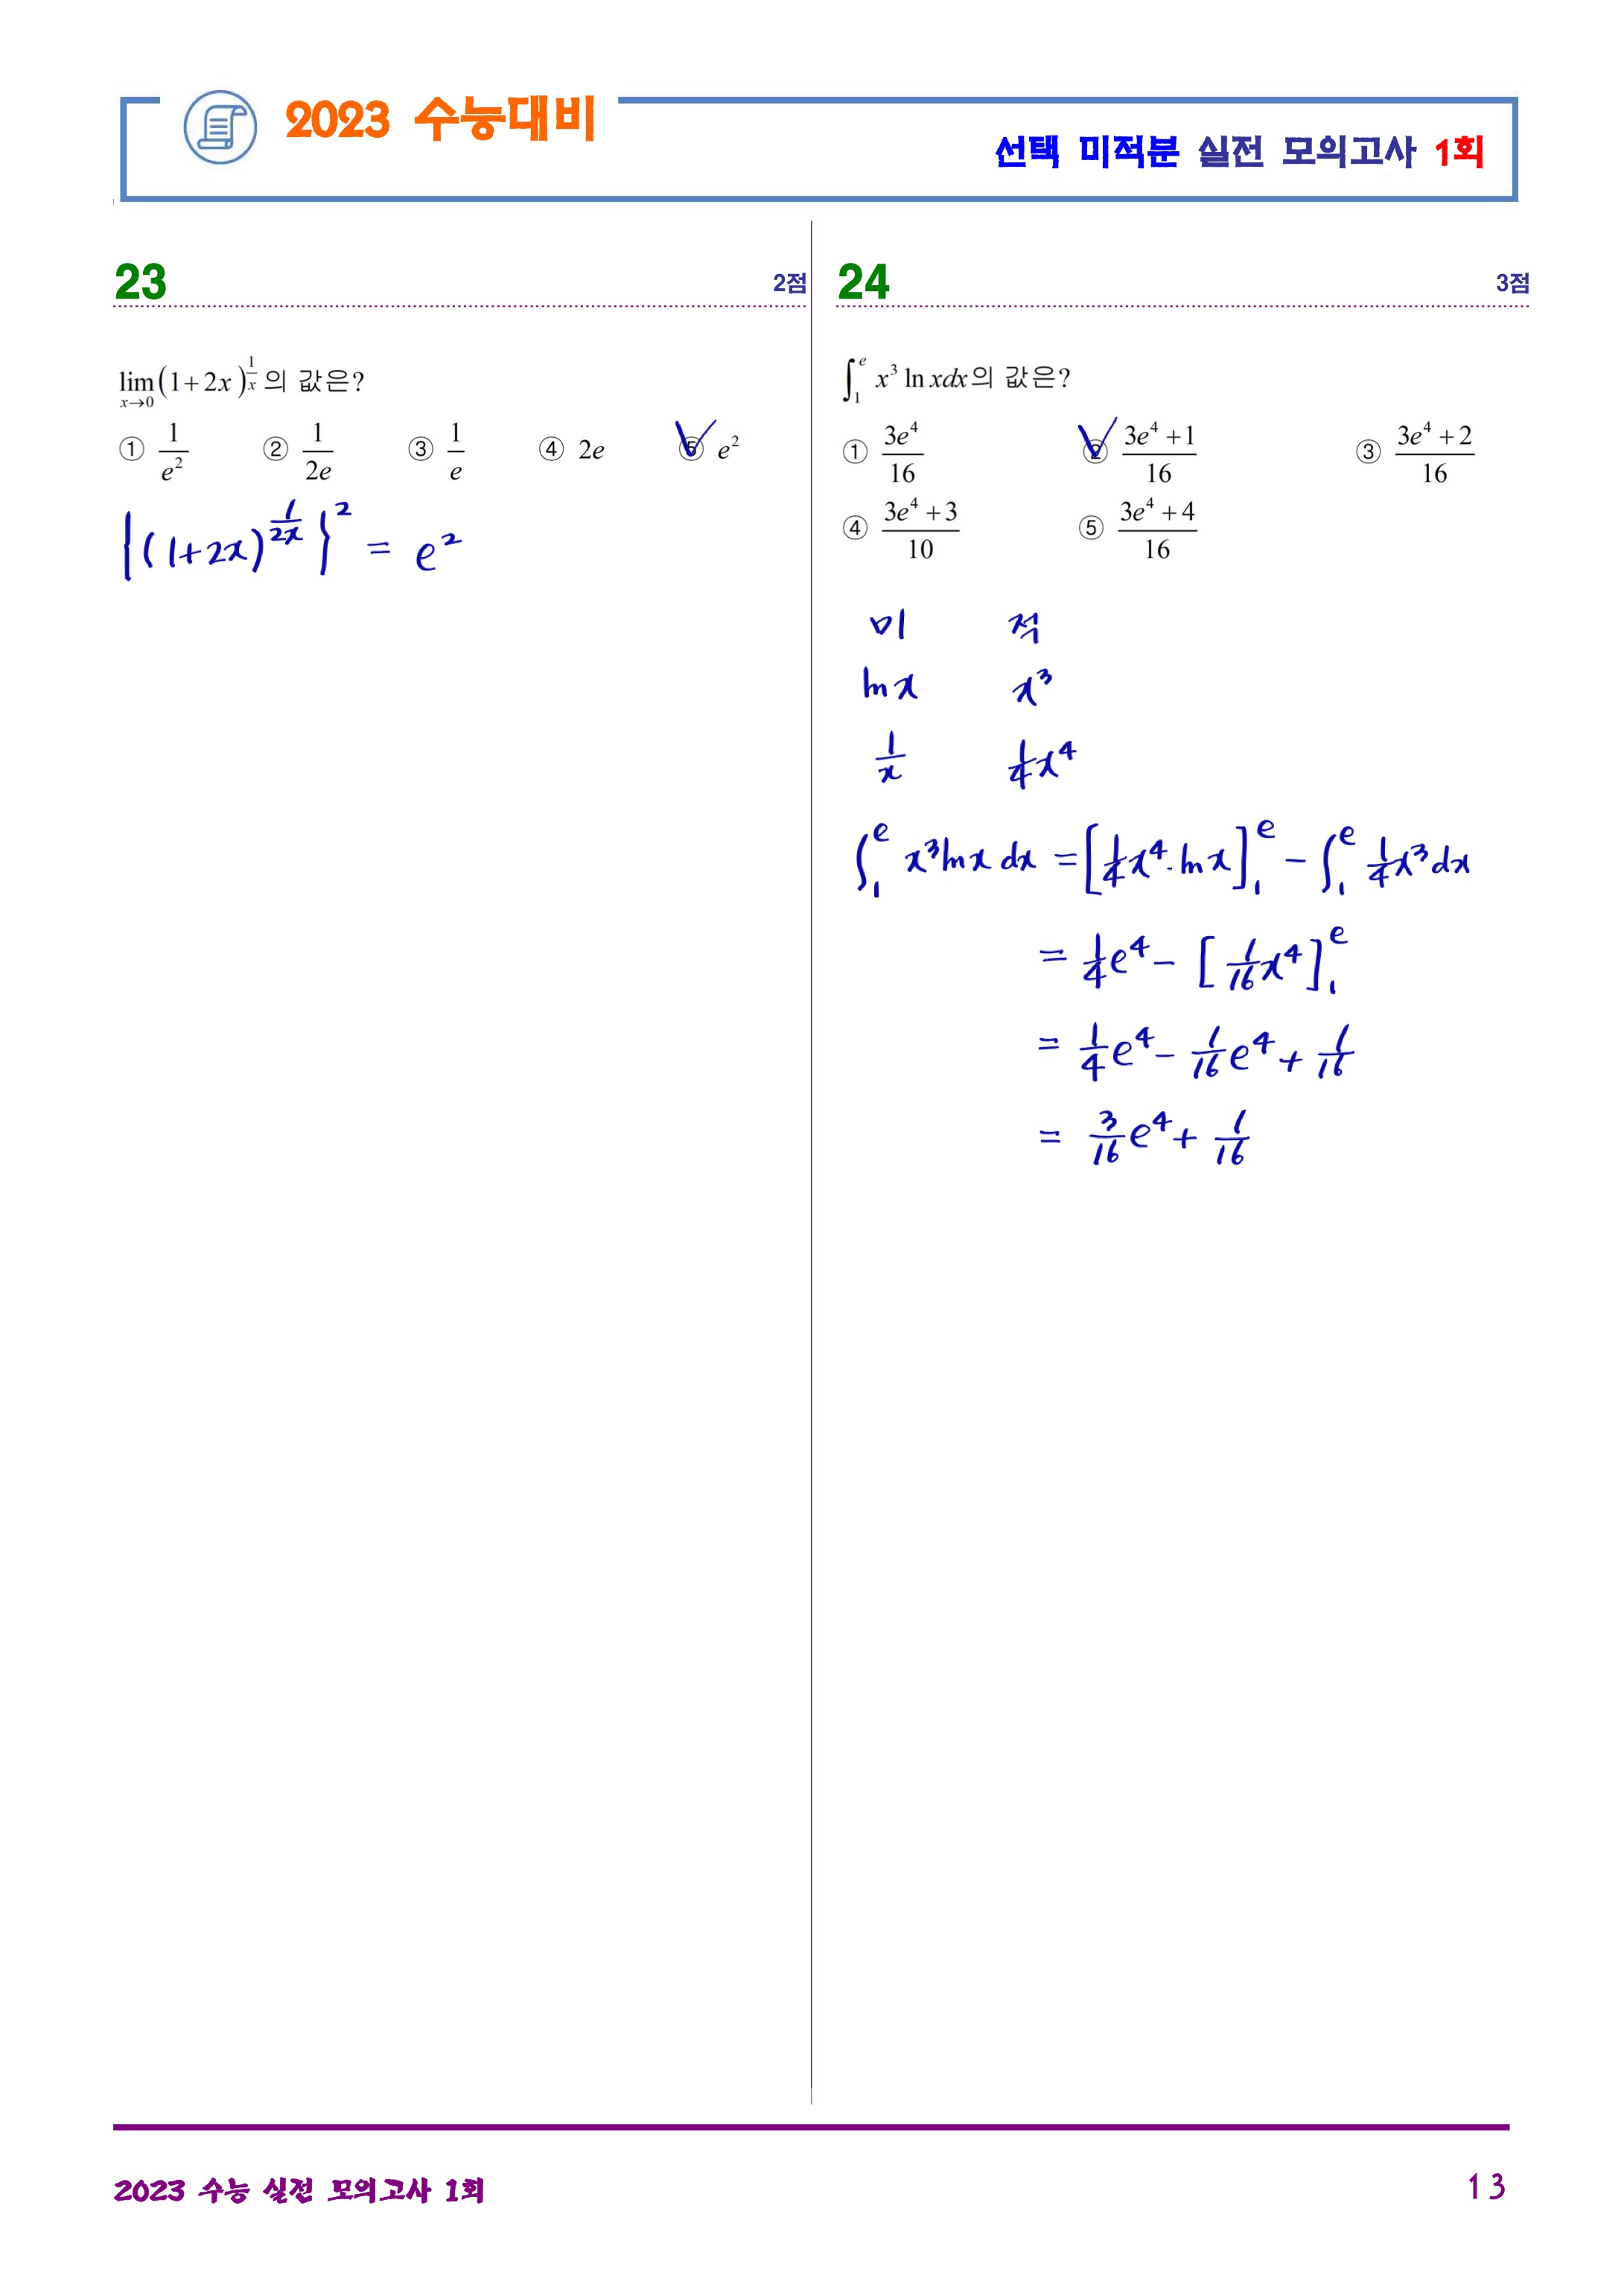 2023 수능대비
선택 미적분 실전 모의고사 1회
23 2점
lim_{x→0} (1+2x)^{1/x} 의 값은?
① 1/e² ② 1/2e ③ 1/e ④ 2e ⑤ e²
{(1+2x)^{1/2x}}² = e²
24 3점
∫₁^e x³ ln xdx의 값은?
① 3e⁴/16 ② (3e⁴+1)/16 ③ (3e⁴+2)/16
④ (3e⁴+3)/10 ⑤ (3e⁴+4)/16
미 적
ln x x³
1/x 1/4 x⁴
∫₁^e x³ ln x dx = [1/4 x⁴ · ln x]₁^e - ∫₁^e 1/4 x³ dx
= 1/4 e⁴ - [1/16 x⁴]₁^e
= 1/4 e⁴ - 1/16 e⁴ + 1/16
= 3/16 e⁴ + 1/16
2023 수능 실전 모의고사 1회
13